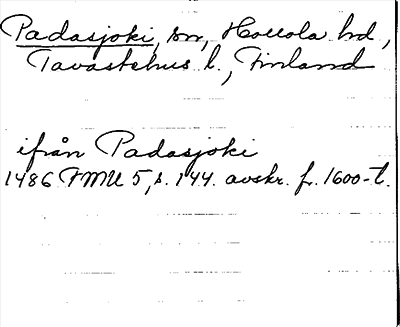 Padasjoki, sn, Hollola hd,
Tavastehus l., Finland
ifrån Padasjoki
1486 FMU 5, s. 144. avskr. fr. 1600-t.